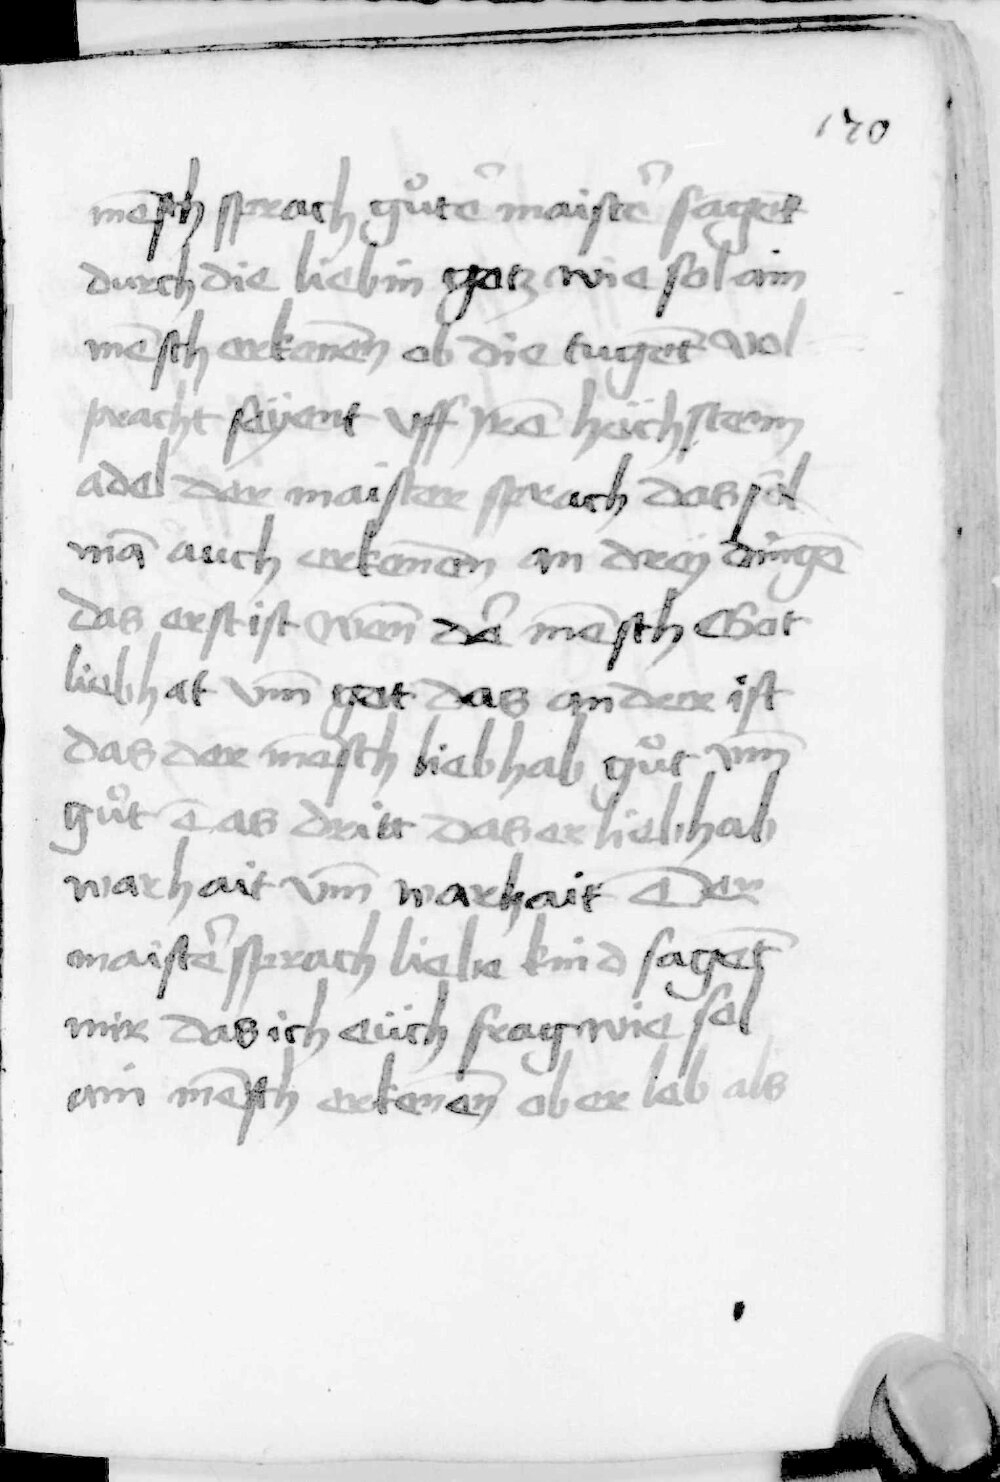 170
mēsch sprach gůtẽ maistẽ saget
durch die lieb in gotz wie sol ain
mēsch erkenēn ob die tugēt vol
pracht seÿent vff jrē höchstem
adel der maister sprach das sol
mā auch erkenēn an dreÿ dingē
das erst ist wen̄ dẽ mēsch Got
lieb hat vm̄ got das ander ist
das der mēsch lieb hab gůt vm̄
gůt das dritt das er lieb hab
warhait vm̄ warhait Der
maistẽ sprach liebe kind sagēt
mir das ich eüch frag wie sol
ain mēsch erkenēn ob er leb als